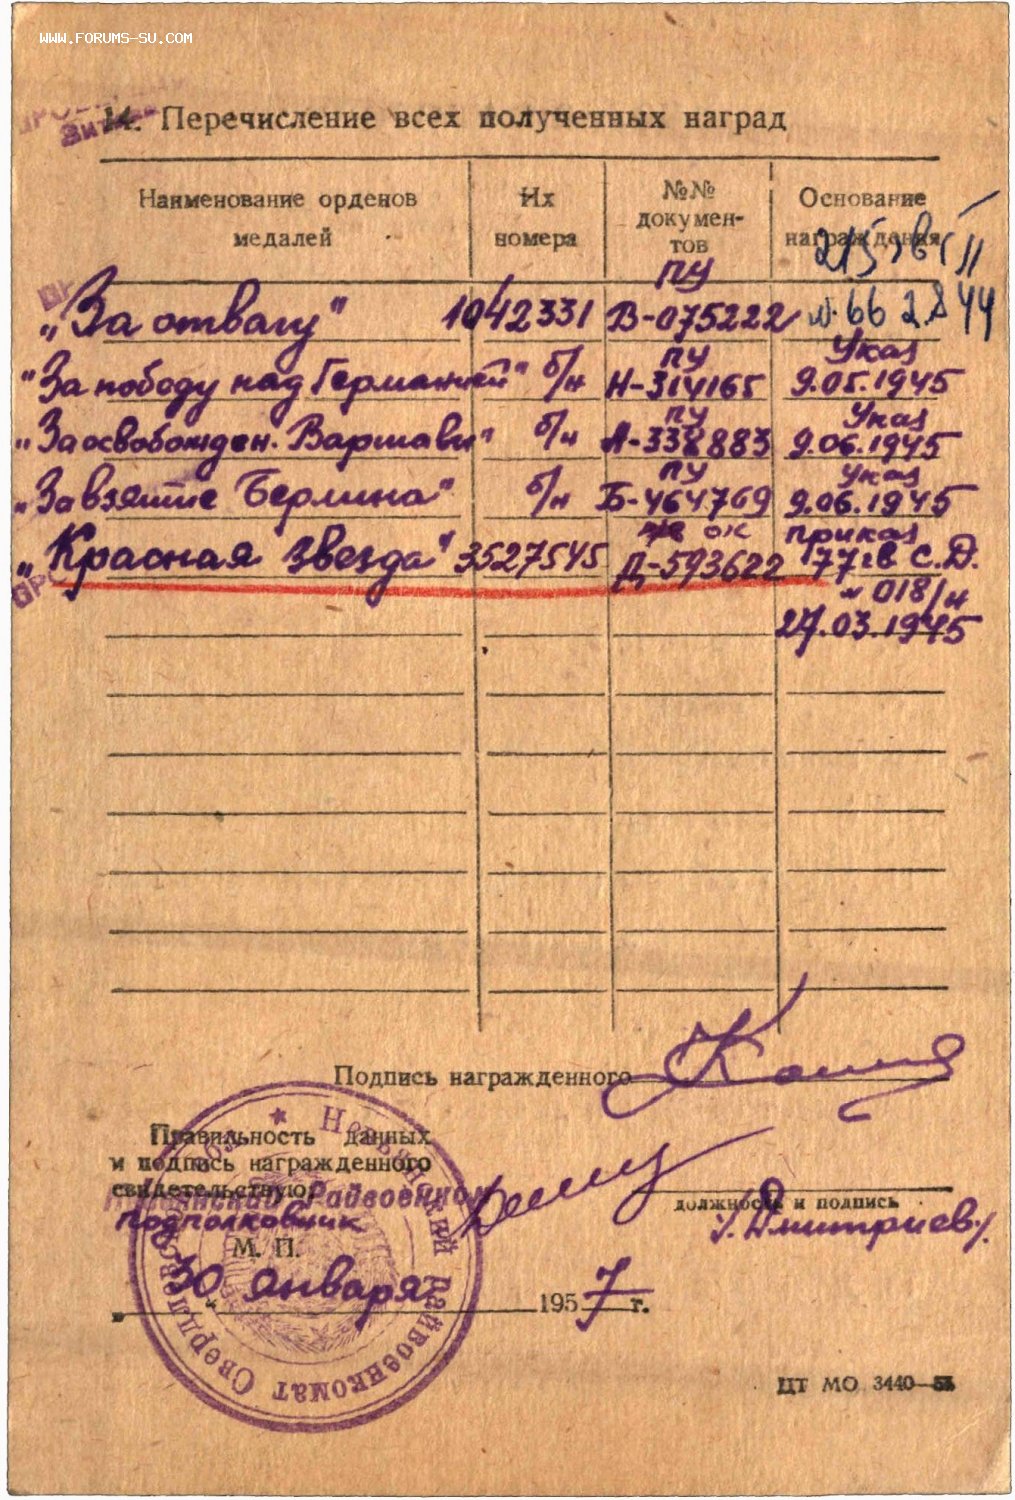 WWW.FORUMS-SU.COM
14. Перечисление всех полученных наград
Наименование орденов медалей
Их номера
№№ документов
Основание награждения
215 гв
"За отвагу" 1042331 ПУ В-075222 66 2.8 44
"За победу над Германией" б/н ПУ Н-314165 Указ 9.05.1945
"За освобожден. Варшавы" б/н ПУ А-338883 Указ 9.06.1945
"За взятие Берлина" б/н ПУ Б-464769 Указ 9.06.1945
"Красная звезда" 3527545 ок Д-593622 приказ 77 гв С.Д.
№ 018/н
27.03.1945
Подпись награжденного
Правильность данных
и подпись награжденного
свидетельствую:
Невьянский Райвоенком
подполковник
должность и подпись
/Дмитриев/
М. П.
30 января 1957 г.
Невьянский райвоенкомат Свердловской обл.
ЦТ МО 3440